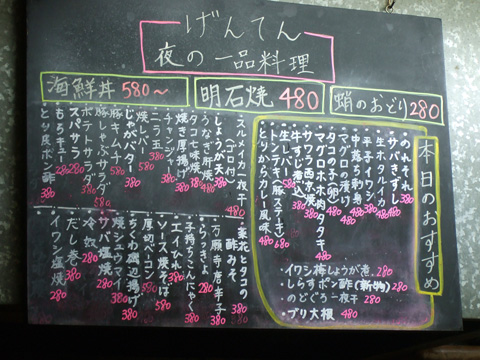 げんてん
夜の一品料理
海鮮丼 580〜
明石焼 480
蛸のおどり 280
本日のおすすめ
のれそれ 380
サバきずし 380
ホタルイカ 380
平子イワシ 380
中落ち刺身 380
マグロの漬け 380
タコの子卵 380
マグロホホ肉タタキ
サワラ西京焼 380
牛すじ煮込 380
生レバー 380
トンテキ(豚ステーキ) 680
とりからカレー風味 480
・イワシ梅しょうが煮 280
・しらすポン酢(新物) 280
・のどぐろ一夜干 380
・ブリ大根 480
スルメイカ一夜干(ゴロ付) 480
しょうが天 380
うなぎ肝焼 380
タコ七味焼 380
焼き厚揚げ 380
チャンジャ 380
ニラ玉 380
焼レバー 380
じゃがバター 380
豚キムチ 380
豚しゃぶサラダ 380
ポテトサラダ 380
スパサラ 280
もちチーズ 280
とり皮ポン酢 380
・菜花とタコの酢みそ 380
・万願寺唐辛子 380
・らっきょ 280
・子持ちこんにゃく 380
・エイひれ 380
・ソース焼そば 380
・厚切ベーコン 380
・ちくわ磯辺揚げ 380
・焼シュウマイ 380
・サバ塩焼 380
・冷奴 280
・だし巻 380
・イワシ塩焼 280